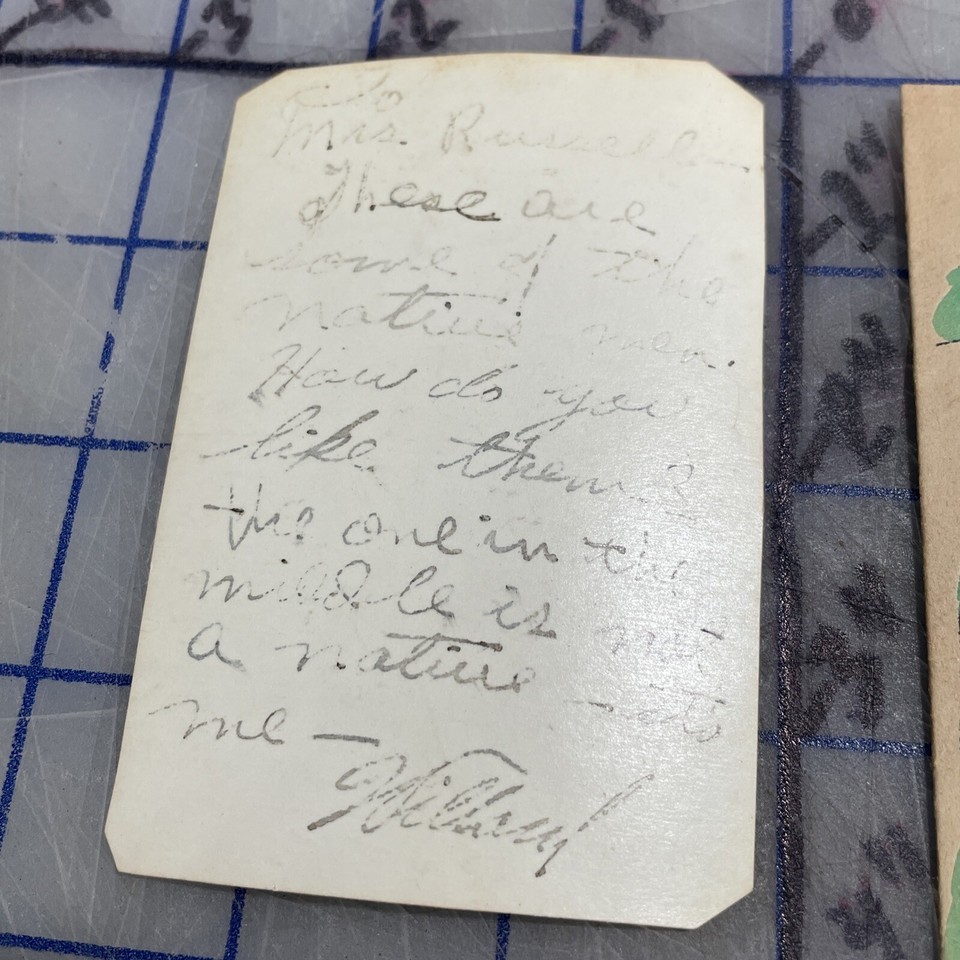 To
Mrs. Russell—
These are
some of the
native men.
How do you
like them?
the one in the
middle is not
a native — its
me —